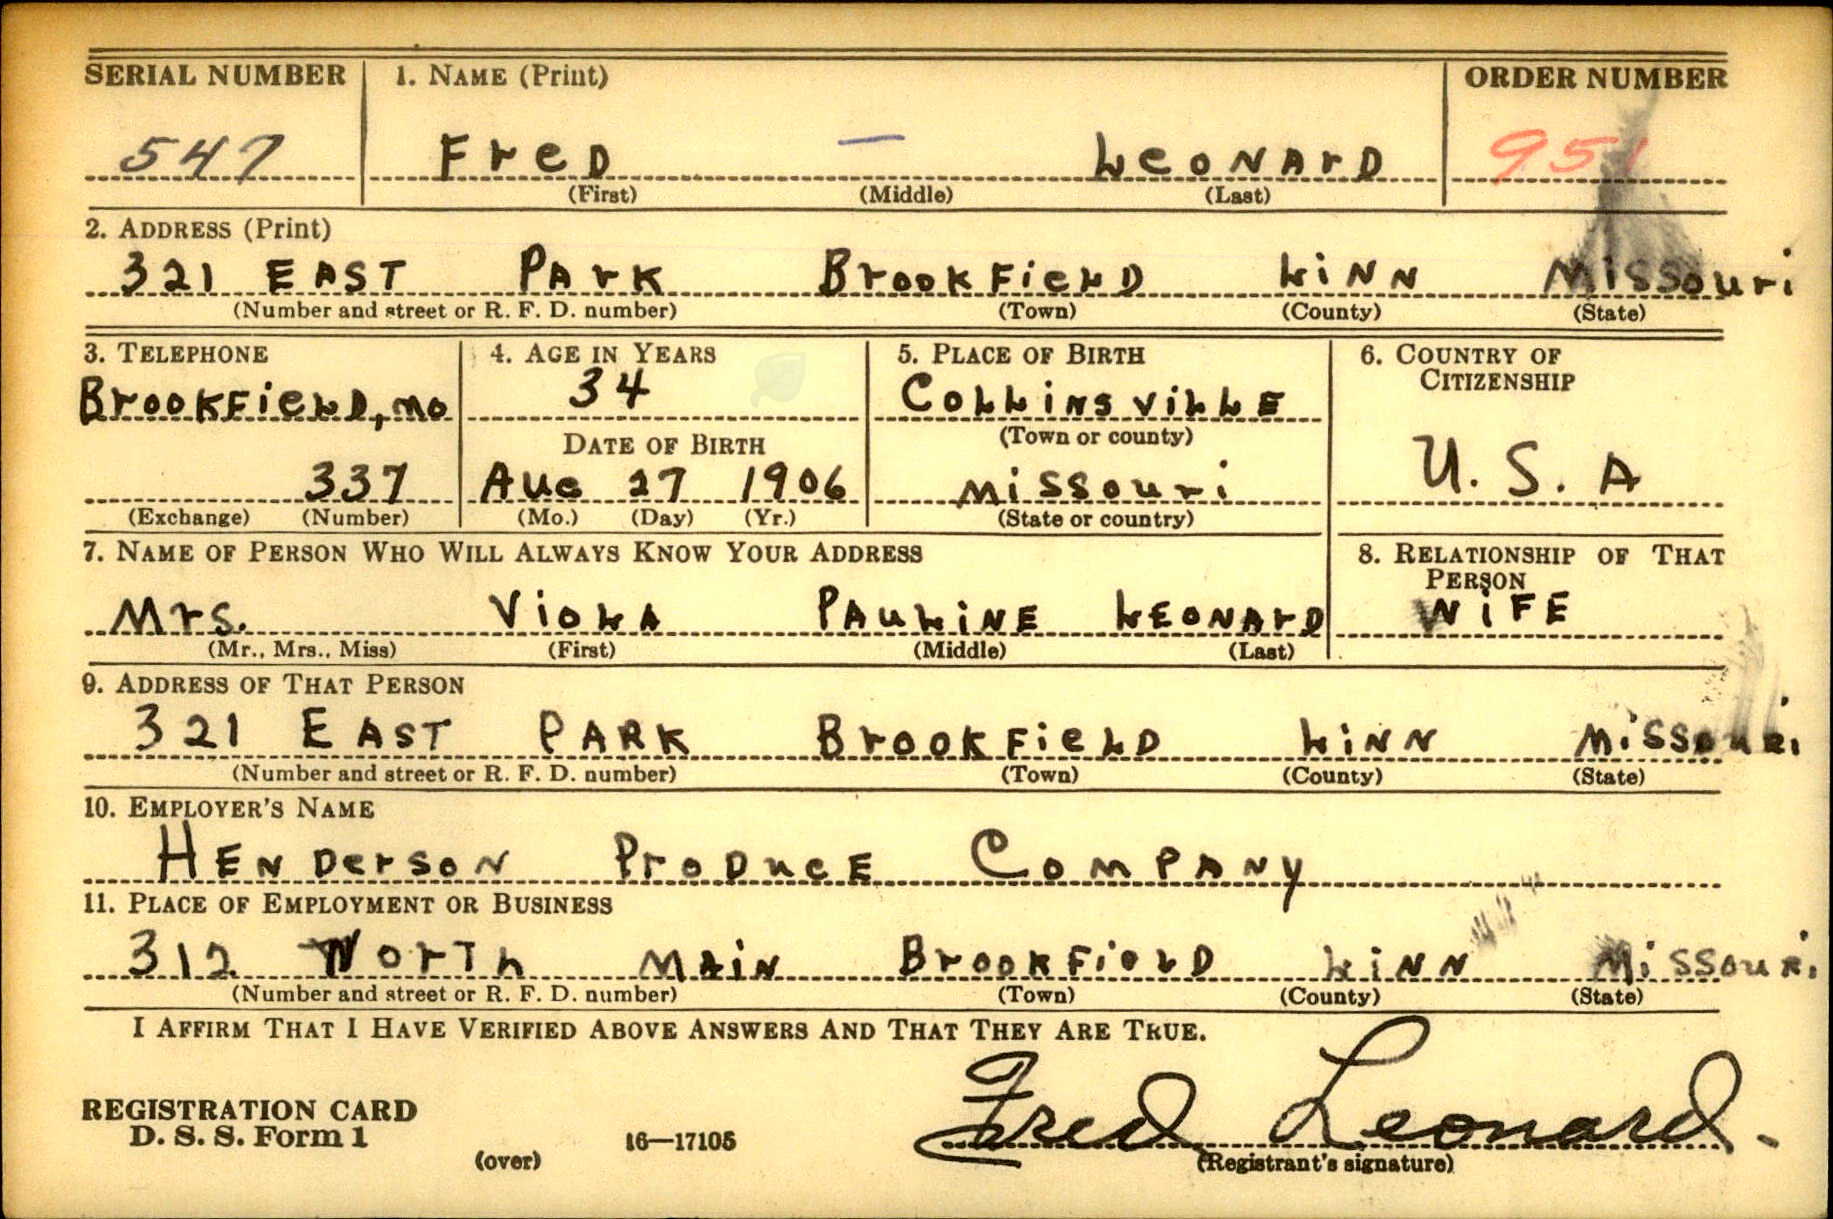 SERIAL NUMBER 1. NAME (Print) ORDER NUMBER
547 FreD — LeonArD 951
(First) (Middle) (Last)
2. ADDRESS (Print)
321 EAST PArK BrookFieLD LiNN Missouri
(Number and street or R. F. D. number) (Town) (County) (State)
3. TELEPHONE 4. AGE IN YEARS 5. PLACE OF BIRTH 6. COUNTRY OF CITIZENSHIP
BrookFieLD, Mo 34 CoLLinsviLLE
(Town or county)
DATE OF BIRTH
337 AUG 27 1906 Missouri U. S. A
(Exchange) (Number) (Mo.) (Day) (Yr.) (State or country)
7. NAME OF PERSON WHO WILL ALWAYS KNOW YOUR ADDRESS 8. RELATIONSHIP OF THAT PERSON
Mrs. VioLA PAuLiNE LEONArD WiFE
(Mr., Mrs., Miss) (First) (Middle) (Last)
9. ADDRESS OF THAT PERSON
321 EAST PARK BrookFieLD LiNN Missouri
(Number and street or R. F. D. number) (Town) (County) (State)
10. EMPLOYER'S NAME
HENDerson ProDucE CoMPANy
11. PLACE OF EMPLOYMENT OR BUSINESS
312 NorTh MAiN BrookFieLD LiNN Missouri
(Number and street or R. F. D. number) (Town) (County) (State)
I AFFIRM THAT I HAVE VERIFIED ABOVE ANSWERS AND THAT THEY ARE TRUE.
Fred Leonard.
REGISTRATION CARD
D. S. S. Form 1 (over) 16—17105 (Registrant's signature)